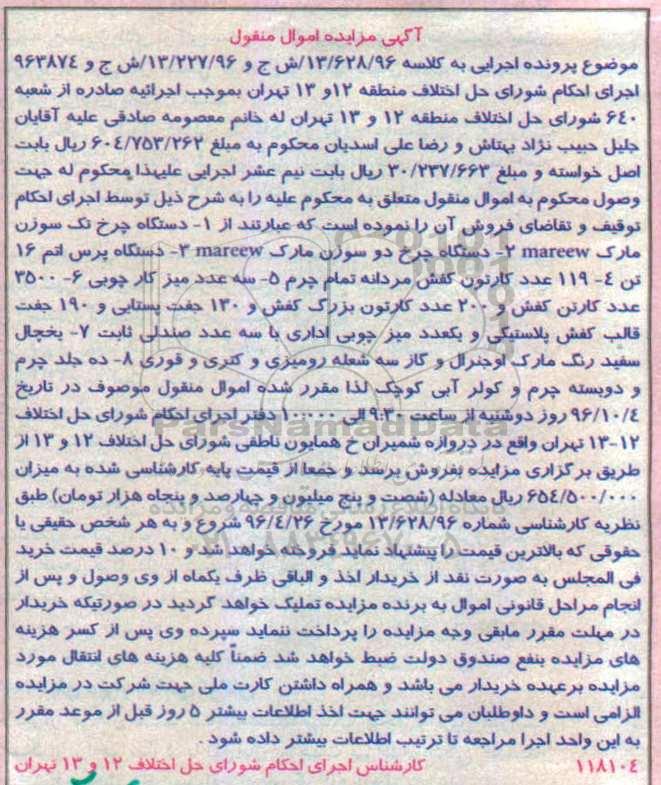 آگهی مزایده اموال منقول
موضوع پرونده اجرایی به کلاسه ۱۳/۶۲۸/۹۶/ش ج و ۱۳/۲۲۷/۹۶/ش ج و ۹۶۳۸۷٤
اجرای احکام شورای حل اختلاف منطقه ۱۲و ۱۳ تهران بموجب اجرائیه صادره از شعبه
٦٤٠ شورای حل اختلاف منطقه ۱۲ و ۱۳ تهران له خانم معصومه صادقی علیه آقایان
جلیل حبیب نژاد بهتاش و رضا علی اسدیان محکوم به مبلغ ٦٠٤/۷۵۳/۲٦۲ ریال بابت
اصل خواسته و مبلغ ۳۰/۲۳۷/٦٦۳ ریال بابت نیم عشر اجرایی علیهذا محکوم له جهت
وصول محکوم به اموال منقول متعلق به محکوم علیه را به شرح ذیل توسط اجرای احکام
توقیف و تقاضای فروش آن را نموده است که عبارتند از ۱- دستگاه چرخ تک سوزن
مارک mareew ۲- دستگاه چرخ دو سوزن مارک mareew ۳- دستگاه پرس اتم ۱۶
تن ٤- ۱۱۹ عدد کارتون کفش مردانه تمام چرم ۵- سه عدد میز کار چوبی ۶- ۳۵۰۰
عدد کارتن کفش و ۲۰۰ عدد کارتون بزرگ کفش و ۱۳۰ جفت پستایی و ۱۹۰ جفت
قالب کفش پلاستیکی و یکعدد میز چوبی اداری با سه عدد صندلی ثابت ۷- یخچال
سفید رنگ مارک اوجنرال و گاز سه شعله رومیزی و کتری و قوری ۸- ده جلد چرم
و دویسته چرم و کولر آبی کوچک لذا مقرر شده اموال منقول موصوف در تاریخ
۹۶/۱۰/٤ روز دوشنبه از ساعت ۹:۳۰ الی ۱۰:۰۰ دفتر اجرای احکام شورای حل اختلاف
۱۲-۱۳ تهران واقع در دروازه شمیران خ همایون ناطقی شورای حل اختلاف ۱۲ و ۱۳ از
طریق برگزاری مزایده بفروش برسد و جمعا از قیمت پایه کارشناسی شده به میزان
٦٥٤/۵۰۰/۰۰۰ ریال معادله (شصت و پنج میلیون و چهارصد و پنجاه هزار تومان) طبق
نظریه کارشناسی شماره ۱۳/۶۲۸/۹۶ مورخ ۹۶/٤/۲۶ شروع و به هر شخص حقیقی یا
حقوقی که بالاترین قیمت را پیشنهاد نماید فروخته خواهد شد و ۱۰ درصد قیمت خرید
فی المجلس به صورت نقد از خریدار اخذ و الباقی ظرف یکماه از وی وصول و پس از
انجام مراحل قانونی اموال به برنده مزایده تملیک خواهد گردید در صورتیکه خریدار
در مهلت مقرر مابقی وجه مزایده را پرداخت ننماید سپرده وی پس از کسر هزینه
های مزایده بنفع صندوق دولت ضبط خواهد شد ضمناً کلیه هزینه های انتقال مورد
مزایده برعهده خریدار می باشد و همراه داشتن کارت ملی جهت شرکت در مزایده
الزامی است و داوطلبان می توانند جهت اخذ اطلاعات بیشتر ۵ روز قبل از موعد مقرر
به این واحد اجرا مراجعه تا ترتیب اطلاعات بیشتر داده شود.
۱۱۸۱۰٤ کارشناس اجرای احکام شورای حل اختلاف ۱۲ و ۱۳ تهران
ParsNamadData